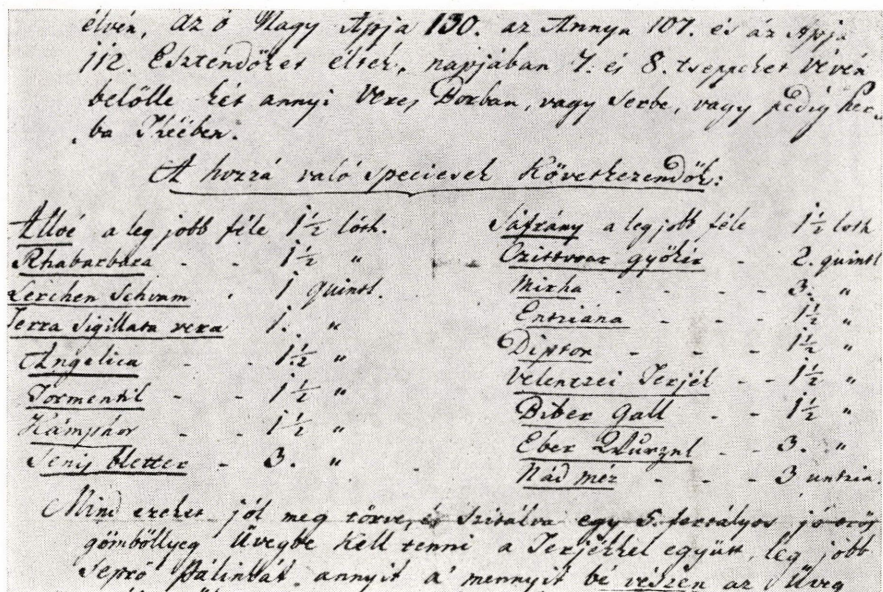 élvén, az ő Nagy Apja 130. az Annya 107. és az Apja
112. Esztendőket éltek, napjában 7. és 8. tseppeket vévén
belőlle két annyi veres Borban, vagy serbe, vagy pedig her-
ba Théében.
A hozzá való speciesek Következendők:
Alloé a leg jobb féle 1½ lóth.
Rhabarbara - - 1½ "
Lerchen Schvam . 1 quintl.
Terra Sigillata vera 1. "
Angelica - - 1½ "
Tormentil - - 1½ "
Kámphor - - 1½ "
Senis bletter - 3. "
Sáfrány a leg jobb féle 1½ loth
Czittvoar gyökér - 2. quintl
Mirha - - - - 3. "
Entziána - - - 1½ "
Dipton - - - 1½ "
Velentzei Terjék - - 1½ "
Biber Gall - - 1½ "
Eber Wurznl - - 3. "
Nád méz - - - 3 untzia.
Mind ezeket jól meg törve, és szitálva egy 5. fertályos jó
gömböllyeg Üvegbe kell tenni a Terjékkel együtt, leg jobb
seprő Pálinkát annyit a' mennyit bé vészen az Üveg